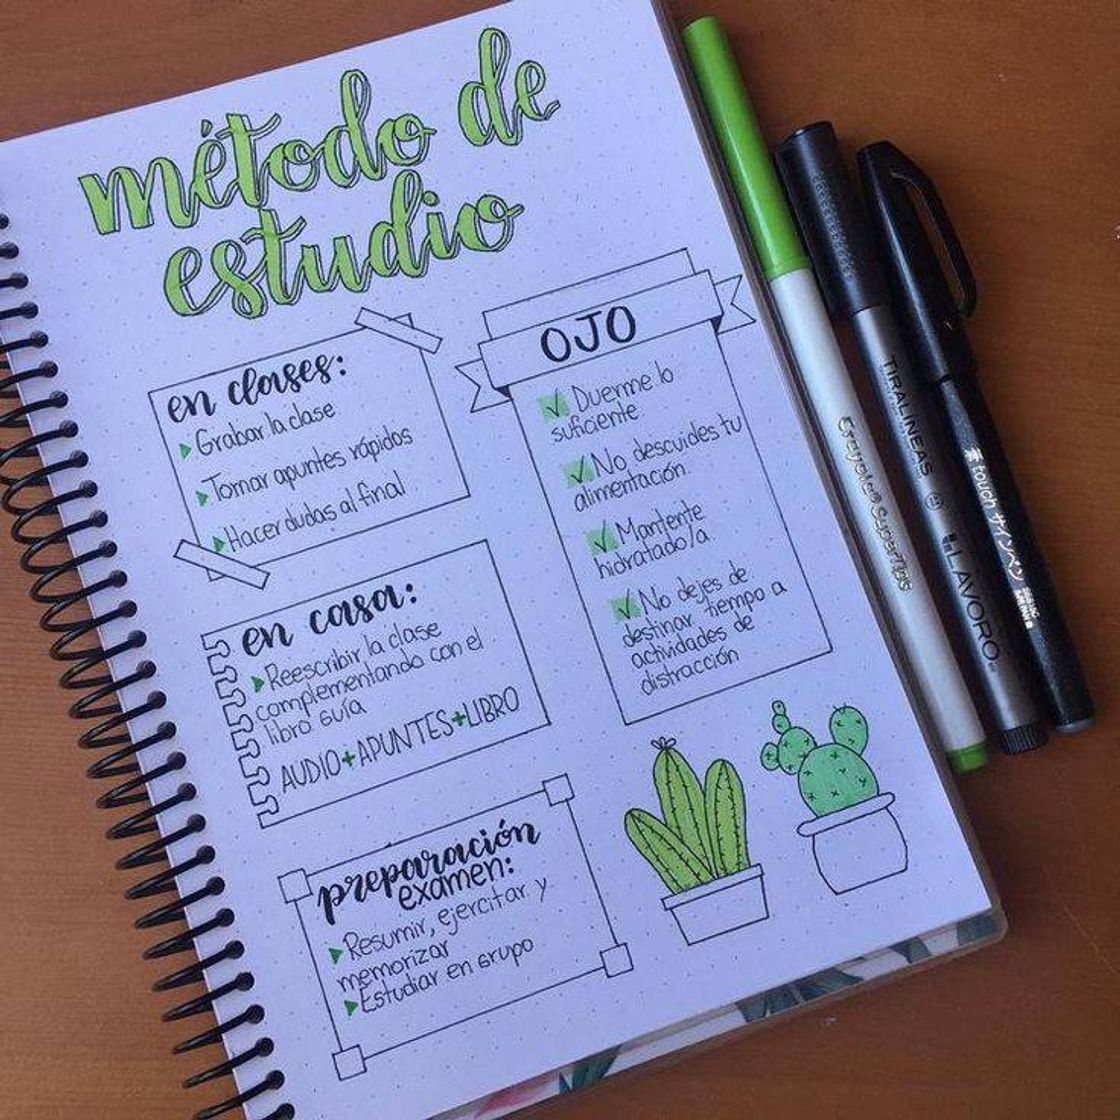 método de
estudio
en clases:
Grabar la clase
Tomar apuntes rápidos
Hacer dudas al final
en casa:
Reescribir la clase
complementando con el
libro guía
AUDIO+APUNTES+LIBRO
preparación
examen:
Resumir, ejercitar y
memorizar
Estudiar en grupo
OJO
Duerme lo
suficiente
No descuides tu
alimentación.
Mantente
hidratado/a
No dejes de
destinar tiempo a
actividades de
distracción
Crayola SuperTips
TIRALINEAS
LAVORO
touch サインペン